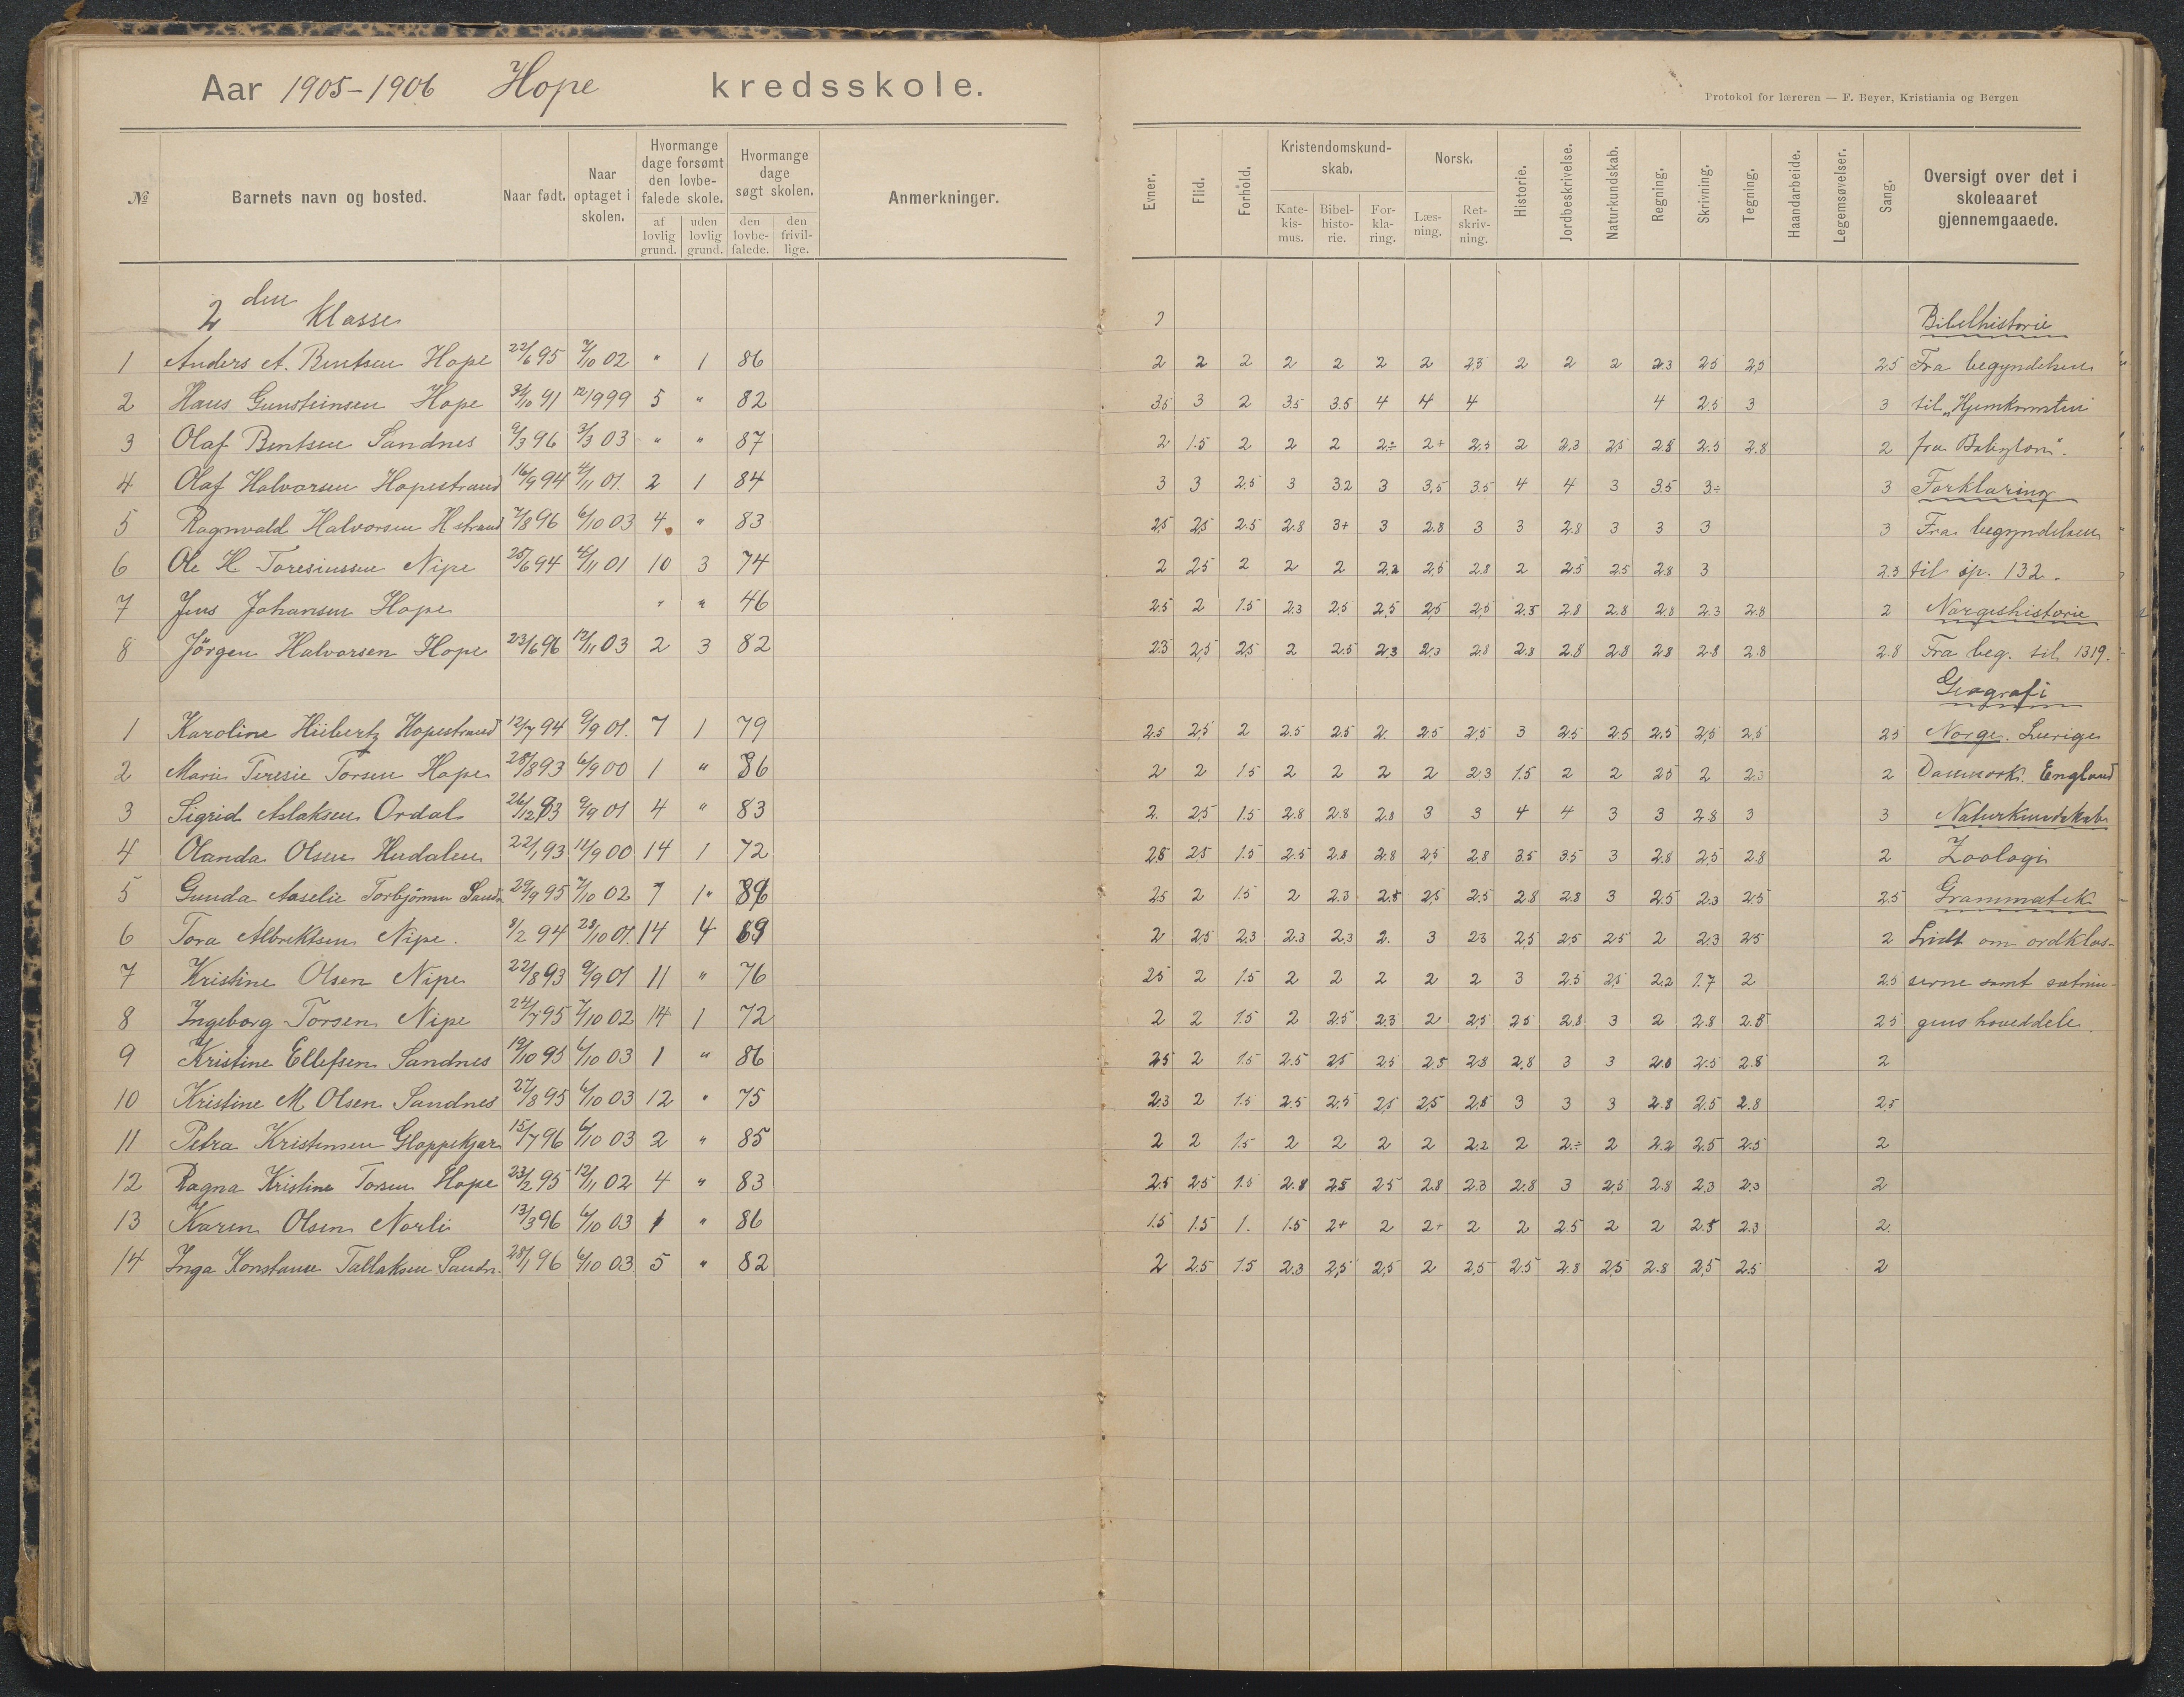 Aar 1905-1906 Hope kredsskole.
Protokol for læreren — F. Beyer, Kristiania og Bergen
№ Barnets navn og bosted. Naar født. Naar optaget i skolen. Hvormange dage forsømt den lovbefalede skole. af lovlig grund. uden lovlig grund. Hvormange dage søgt skolen. den lovbefalede. den frivillige. Anmerkninger.
Evner. Flid. Forhold. Kristendomskundskab. Katekismus. Bibelhistorie. Forklaring. Norsk. Læsning. Retskrivning. Historie. Jordbeskrivelse. Naturkundskab. Regning. Skrivning. Tegning. Haandarbeide. Legemsøvelser. Sang. Oversigt over det i skoleaaret gjennemgaaede.
2den Klasse Bibelhistorie
1 Anders A. Bentsen Hope 22/6 95 7/10 02 " 1 86 2 2 2 2 2 2 2 2,3 2 2 2 2.3 2.5 2,5 2.5 Fra begyndelsen
2 Hans Gunsteinsen Hope 31/10 91 12/9 99 5 " 82 3.5 3 2 3.5 3.5 4 4 4 4 2.5 3 3 til „Hjemkomsten
3 Olaf Bentsen Sandnes 9/3 96 3/3 03 " " 87 2 1.5 2 2 2 2÷ 2+ 2.3 2 2.3 2,5 2.8 2.5 2.8 2 fra Babylon".
4 Olaf Halvorsen Hopestrand 16/9 94 4/11 01. 2 1 84 3 3 2.5 3 3.2 3 3,5 3.5 4 4 3 3.5 3÷ 3 Forklaring
5 Ragnvald Halvorsen Hstrand 7/8 96 6/10 03 4 " 83 2,5 2,5 2.5 2.8 3+ 3 2.8 3 3 2.8 3 3 3 3 Fra begyndelsen
6 Ole H. Toresiussen Nipe 25/6 94 4/11 01 10 3 74 2 2,5 2 2 2 2.3 2,5 2.8 2 2.5 2.5 2.8 3 2.3 til sp. 132.
7 Jens Johansen Hope " " 46 2.5 2 1.5 2.3 2.5 2,5 2,5 2,5 2.5 2.8 2.8 2.8 2.3 2.8 2 Norgeshistorie
8 Jörgen Halvorsen Hope 23/6 96 12/11 03 2 3 82 2.3 2,5 2,5 2 2.5 2.3 2.3 2.8 2.8 2.8 2.8 2.8 2.8 2.8 2.8 Fra beg. til 1319.
Geografi
1 Karoline Hiibertz Hopestrand 12/7 94 9/9 01. 7 1 79 2.5 2,5 2 2.5 2.5 2. 2.5 2,5 3 2.5 2.5 2.5 2,5 2,5 2.5 Norge. Sverige
2 Marie Teresie Torsen Hope 28/8 93 6/9 00 1 " 86 2 2 1.5 2 2 2 2 2.3 1.5 2 2 2.5 2 2.3 2 Danmark. England
3 Sigrid Aslaksen Ordal 26/12 93 9/9 01 4 " 83 2. 2,5 1.5 2.8 2.8 2.8 3 3 4 4 3 3 2.8 3 3 Naturkundskab
4 Olanda Olsen Hudalen 22/1 93 12/9 00 14 1 72 2.5 2.5 1.5 2.5 2.8 2.8 2.5 2.8 3.5 3.5 3 2.8 2.5 2.8 2 Zoologi
5 Gunda Aaselie Torbjörnsen Sandn. 29/9 95 7/10 02 7 1" 86 2.5 2 1.5 2 2.3 2.5 2,5 2.5 2.8 2.8 3 2.5 2.3 2.5 2.5 Grammatik
6 Tora Albrektsen Nipe. 8/2 94 28/10 01. 14 4 69 2 2,5 2.3 2.3 2.3 2. 3 2.3 2.5 2.5 2.5 2 2.3 2.5 2 Lidt om ordklas-
7 Kristine Olsen Nipe 22/8 93 9/9 01 11 " 76 2.5 2 1.5 2 2 2 2 2 3 2.5 2,5 2.2 1.7 2 2.5 serne samt sætnin-
8 Ingeborg Torsen Nipe 24/7 95 7/10 02 14 1 72 2 2 1.5 2 2.5 2.3 2 2,5 2.5 2.8 3 2 2.8 2.5 2.5 gens hoveddele.
9 Kristine Ellefsen Sandnes 19/10 95 6/10 03 1 " 86 2.5 2 1.5 2.5 2,5 2.5 2.5 2.8 2,8 3 3 2.8 2.5 2.8 2
10 Kristine M Olsen Sandnes 27/8 95 6/10 03 12 " 75 2.3 2 1.5 2.5 2.5 2,5 2,5 2,5 3 3 3 2.8 2.5 2.8 2,5
11 Petra Kristensen Gloppekjær 15/7 96 6/10 03 2 " 85 2 2 1.5 2 2 2 2 2.2 2 2÷ 2 2.2 2.5 2.5 2
12 Ragna Kristine Torsen Hope 23/2 95 12/11 02 4 " 83 2.5 2.5 1.5 2.8 2.5 2.5 2.8 2.3 2.8 3 2,5 2.8 2.3 2.3 2
13 Karen Olsen Norli 13/3 96 6/10 03 1 " 86 1.5 1.5 1. 1.5 2+ 2 2+ 2 2 2.5 2 2 2.5 2.3 2.
14 Inga Konstanse Tallaksen Sandn. 28/1 96 6/10 03 5 " 82 2 2.5 1.5 2.3 2,5 2,5 2 2,5 2.5 2.8 2,5 2.8 2,5 2.5 2